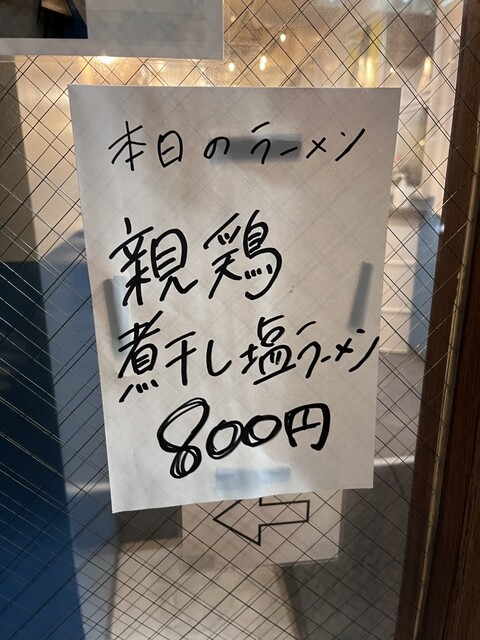 本日のラーメン
親鶏
煮干し塩ラーメン
800円